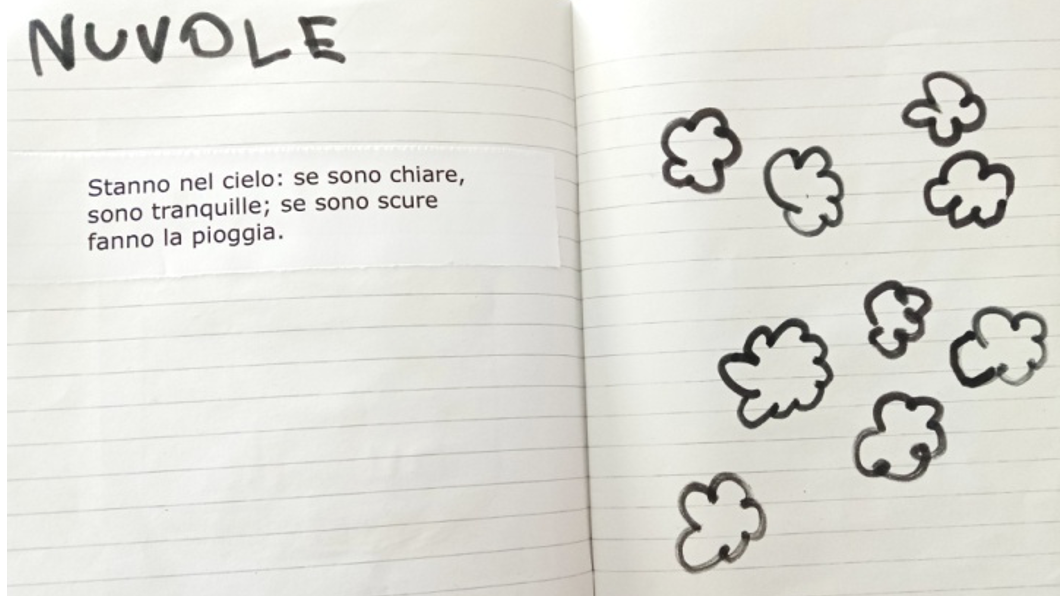 NUVOLE
Stanno nel cielo: se sono chiare,
sono tranquille; se sono scure
fanno la pioggia.